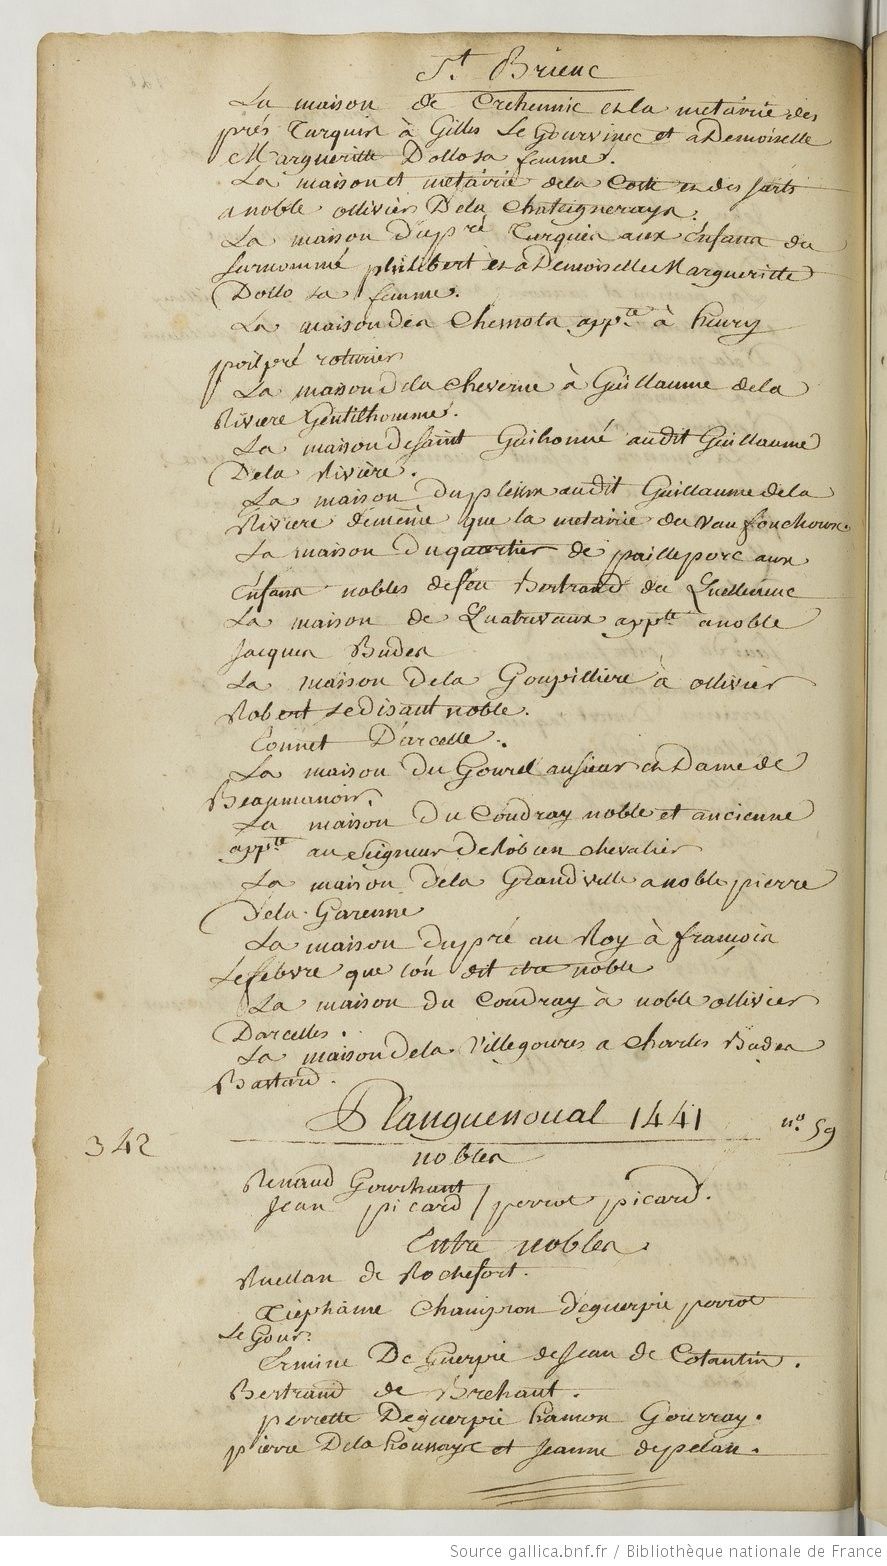 St. Brieuc
La maison de Crehennic et la metairie des
prés Turquin à Gilles Le Gourvinec et a Demoiselle
Margueritte Dollo sa femme.
La maison et metairie de la Coste et des sarts
a noble ollivier De la Chateigneraya.
La maison du pré Turquin aux Enfans du
surnommé philibert et a Demoiselle Margueritte
Dollo sa femme.
La maison des Chesnots app.te à henry
poilpré roturier
La maison de la Cheverue à Guillaume de la
Riviere Gentilhomme.
La maison de saint Guihonné audit Guillaume
De la Riviere.
La maison du plessix audit Guillaume de la
Riviere de même que la metairie du Vaufouchoux.
La maison du quartier de pailleporc aux
Enfans nobles de feu Bertrand du Quellenec
La maison de Quatrevaux app.te a noble
Jacques Budes
La maison de la Goupilliere à ollivier
Robert se disant noble.
Connet D'arcelle.
La maison du Gourel au sieur et Dame de
Beaumanoir.
La maison du Coudray noble et ancienne
app.te au Seigneur de Robien chevalier
La maison de la Grandville a noble pierre
De la Garenne
La maison du pré au Roy à françois
Lefebvre que l'on dit etre noble
La maison du Coudray à noble ollivier
Darcelles.
La maison de la Villegoures a Charles Budes
Bastard.
Planguenoual 1441 n.o 59
342
nobles
Renaud Gourhant
Jean picard / perrot picard.
Entre nobles.
Ruellan de Rochefort.
Tiephaine Champion Deguerpie perrot
Le Gour.
Ermine De Guerpie de Jean de Cotantin.
Bertrand de Brehant.
perrette Deguerpie hamon Gourray.
pierre De la houssaye et Jeanne depelan.
Source gallica.bnf.fr / Bibliothèque nationale de France